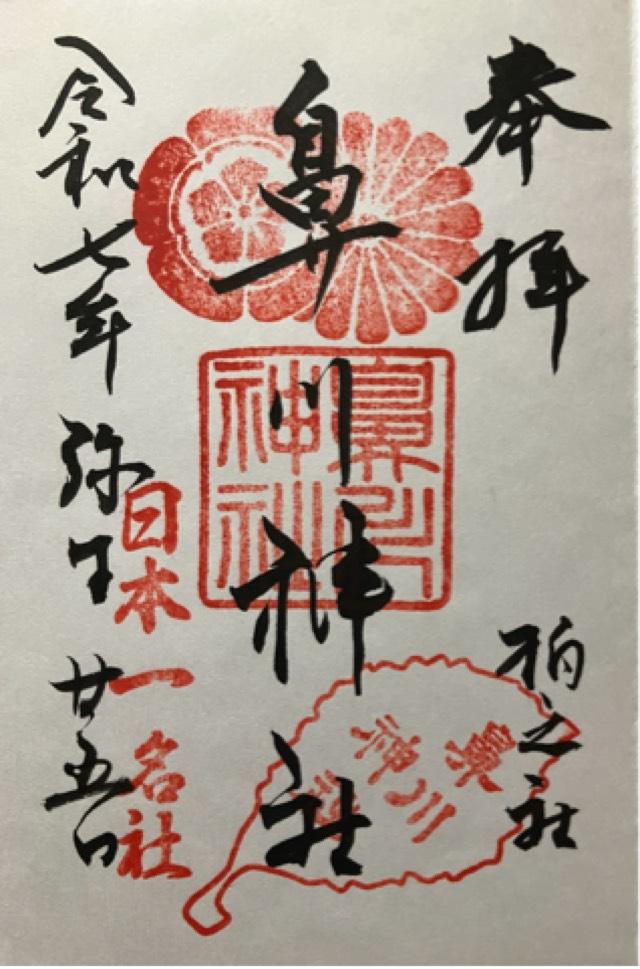 奉拝
柏之社
鼻川神社
鼻川
神社
鼻川
神社
日本一名社
令和七年 弥生 廿五日